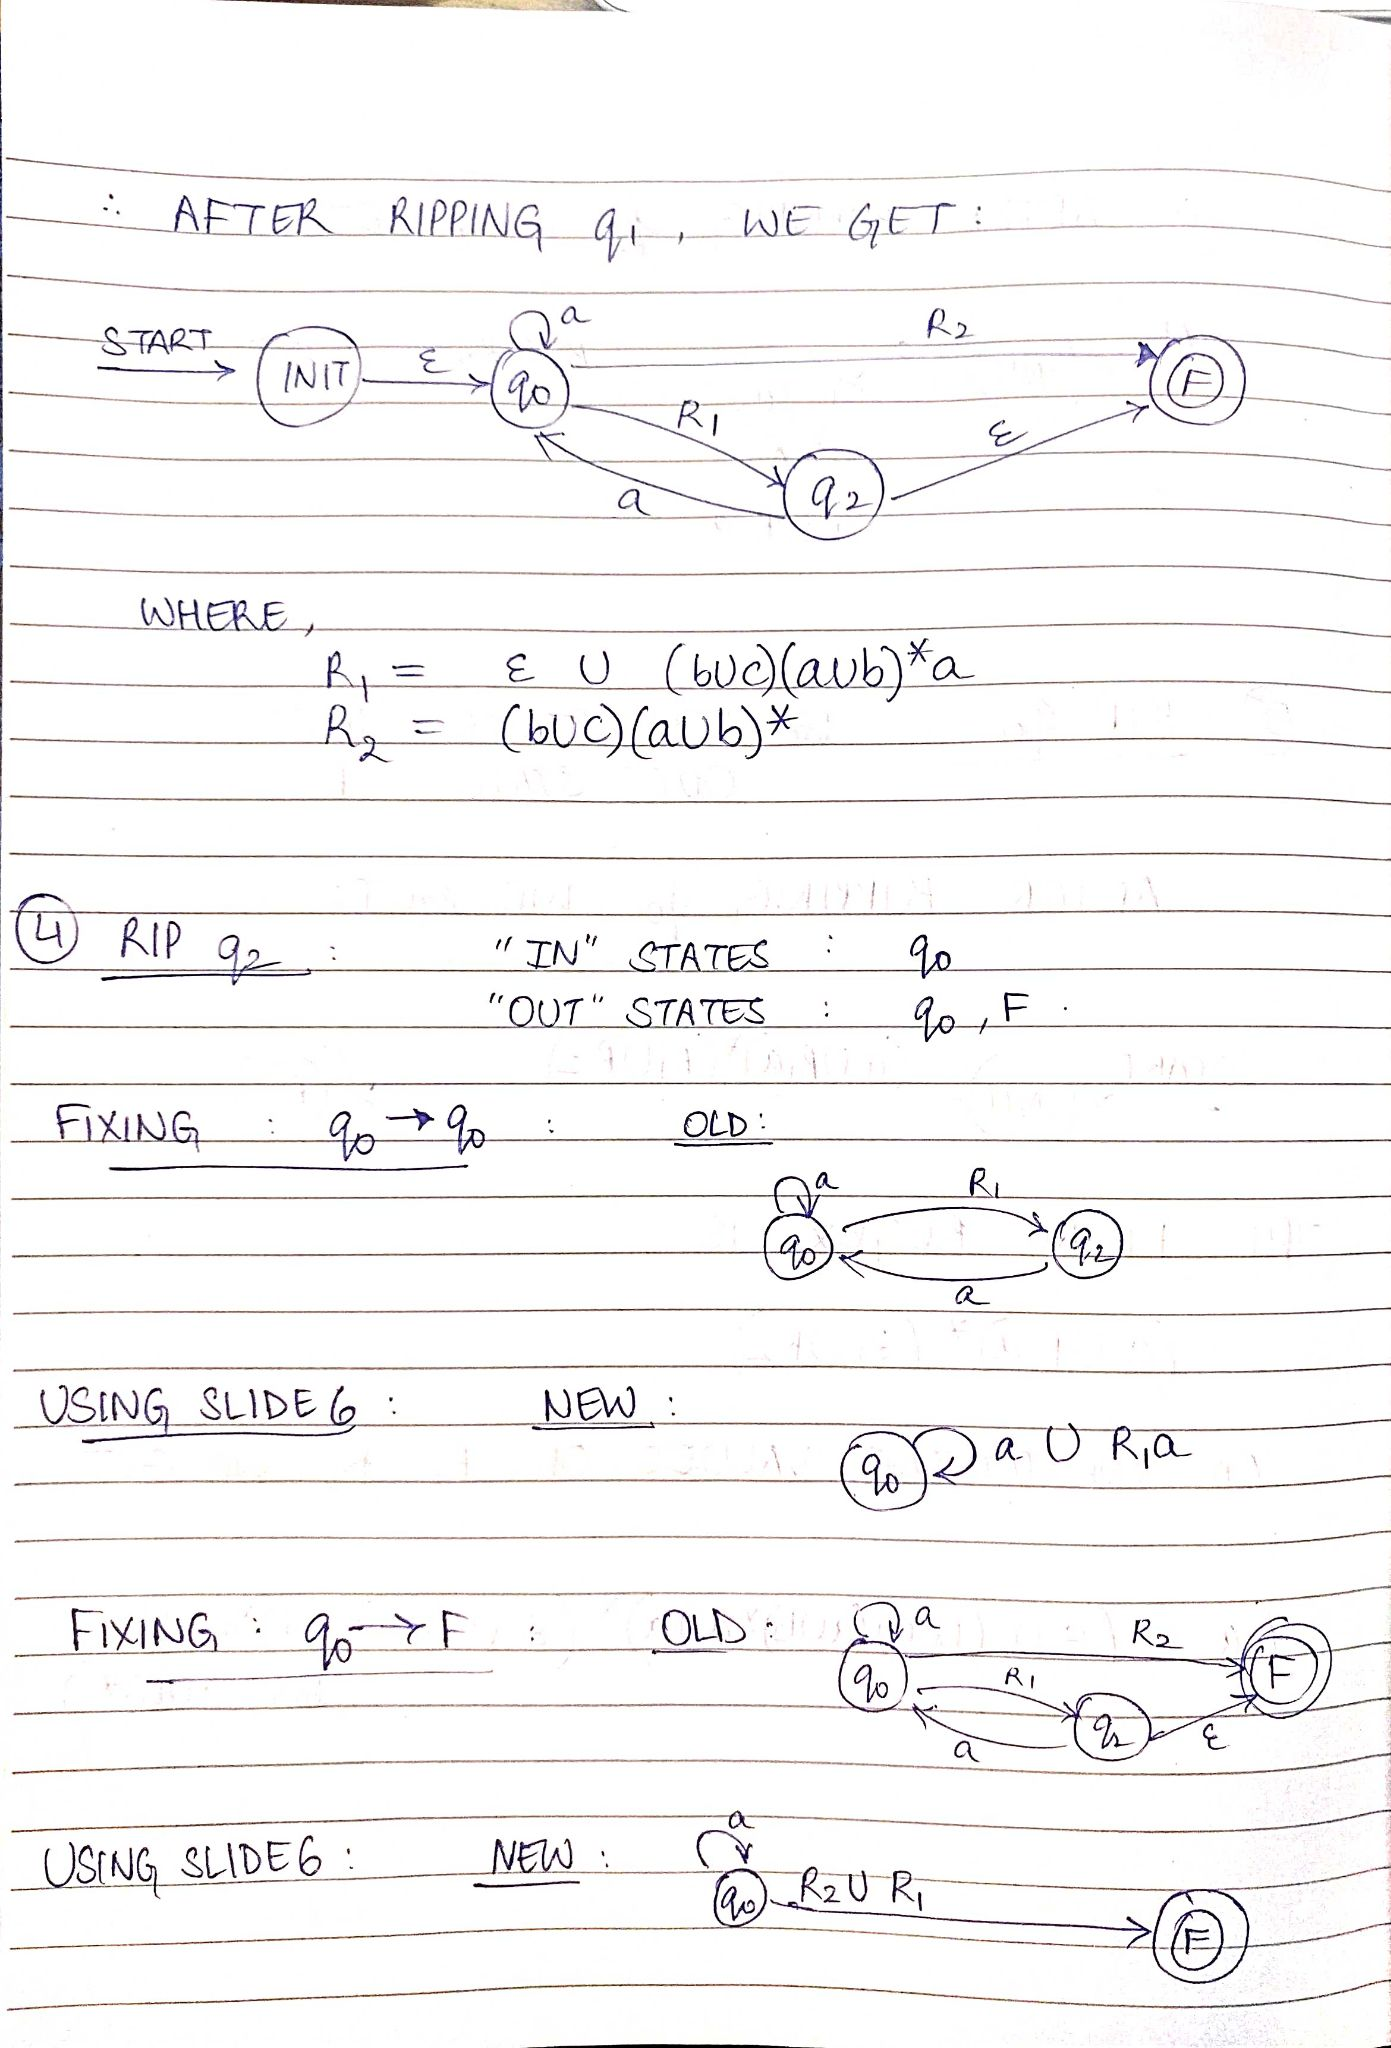 ∴ AFTER RIPPING q1, WE GET :
START INIT ε q0 a R2 F
R1 ε
a q2
WHERE,
R1 = ε ∪ (b∪c)(a∪b)*a
R2 = (b∪c)(a∪b)*
4 RIP q2 : "IN" STATES : q0
"OUT" STATES : q0, F .
FIXING : q0 → q0 : OLD :
a R1
q0 q2
a
USING SLIDE 6 : NEW :
q0 a ∪ R1a
FIXING : q0 → F : OLD : a R2
q0 R1 F
a q2 ε
USING SLIDE 6 : NEW : a
q0 R2 ∪ R1
F